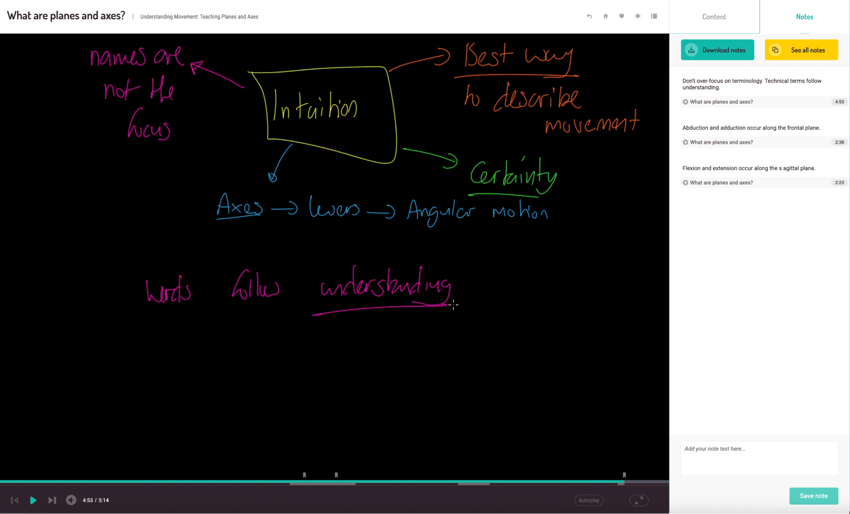 What are planes and axes? | Understanding Movement: Teaching Planes and Axes
Content Notes
Download notes See all notes
names are
not the
focus
Intuition
Best way
to describe
movement
Certainty
Axes → levers → Angular motion
Words follow understanding
Don't over-focus on terminology. Technical terms follow
understanding.
What are planes and axes? 4:53
Abduction and adduction occur along the frontal plane.
What are planes and axes? 2:38
Flexion and extension occur along the s agittal plane.
What are planes and axes? 2:23
Add your note text here...
Save note
4:53 / 5:14
Autoplay